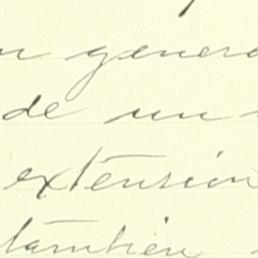 gener
de un
extensión
también